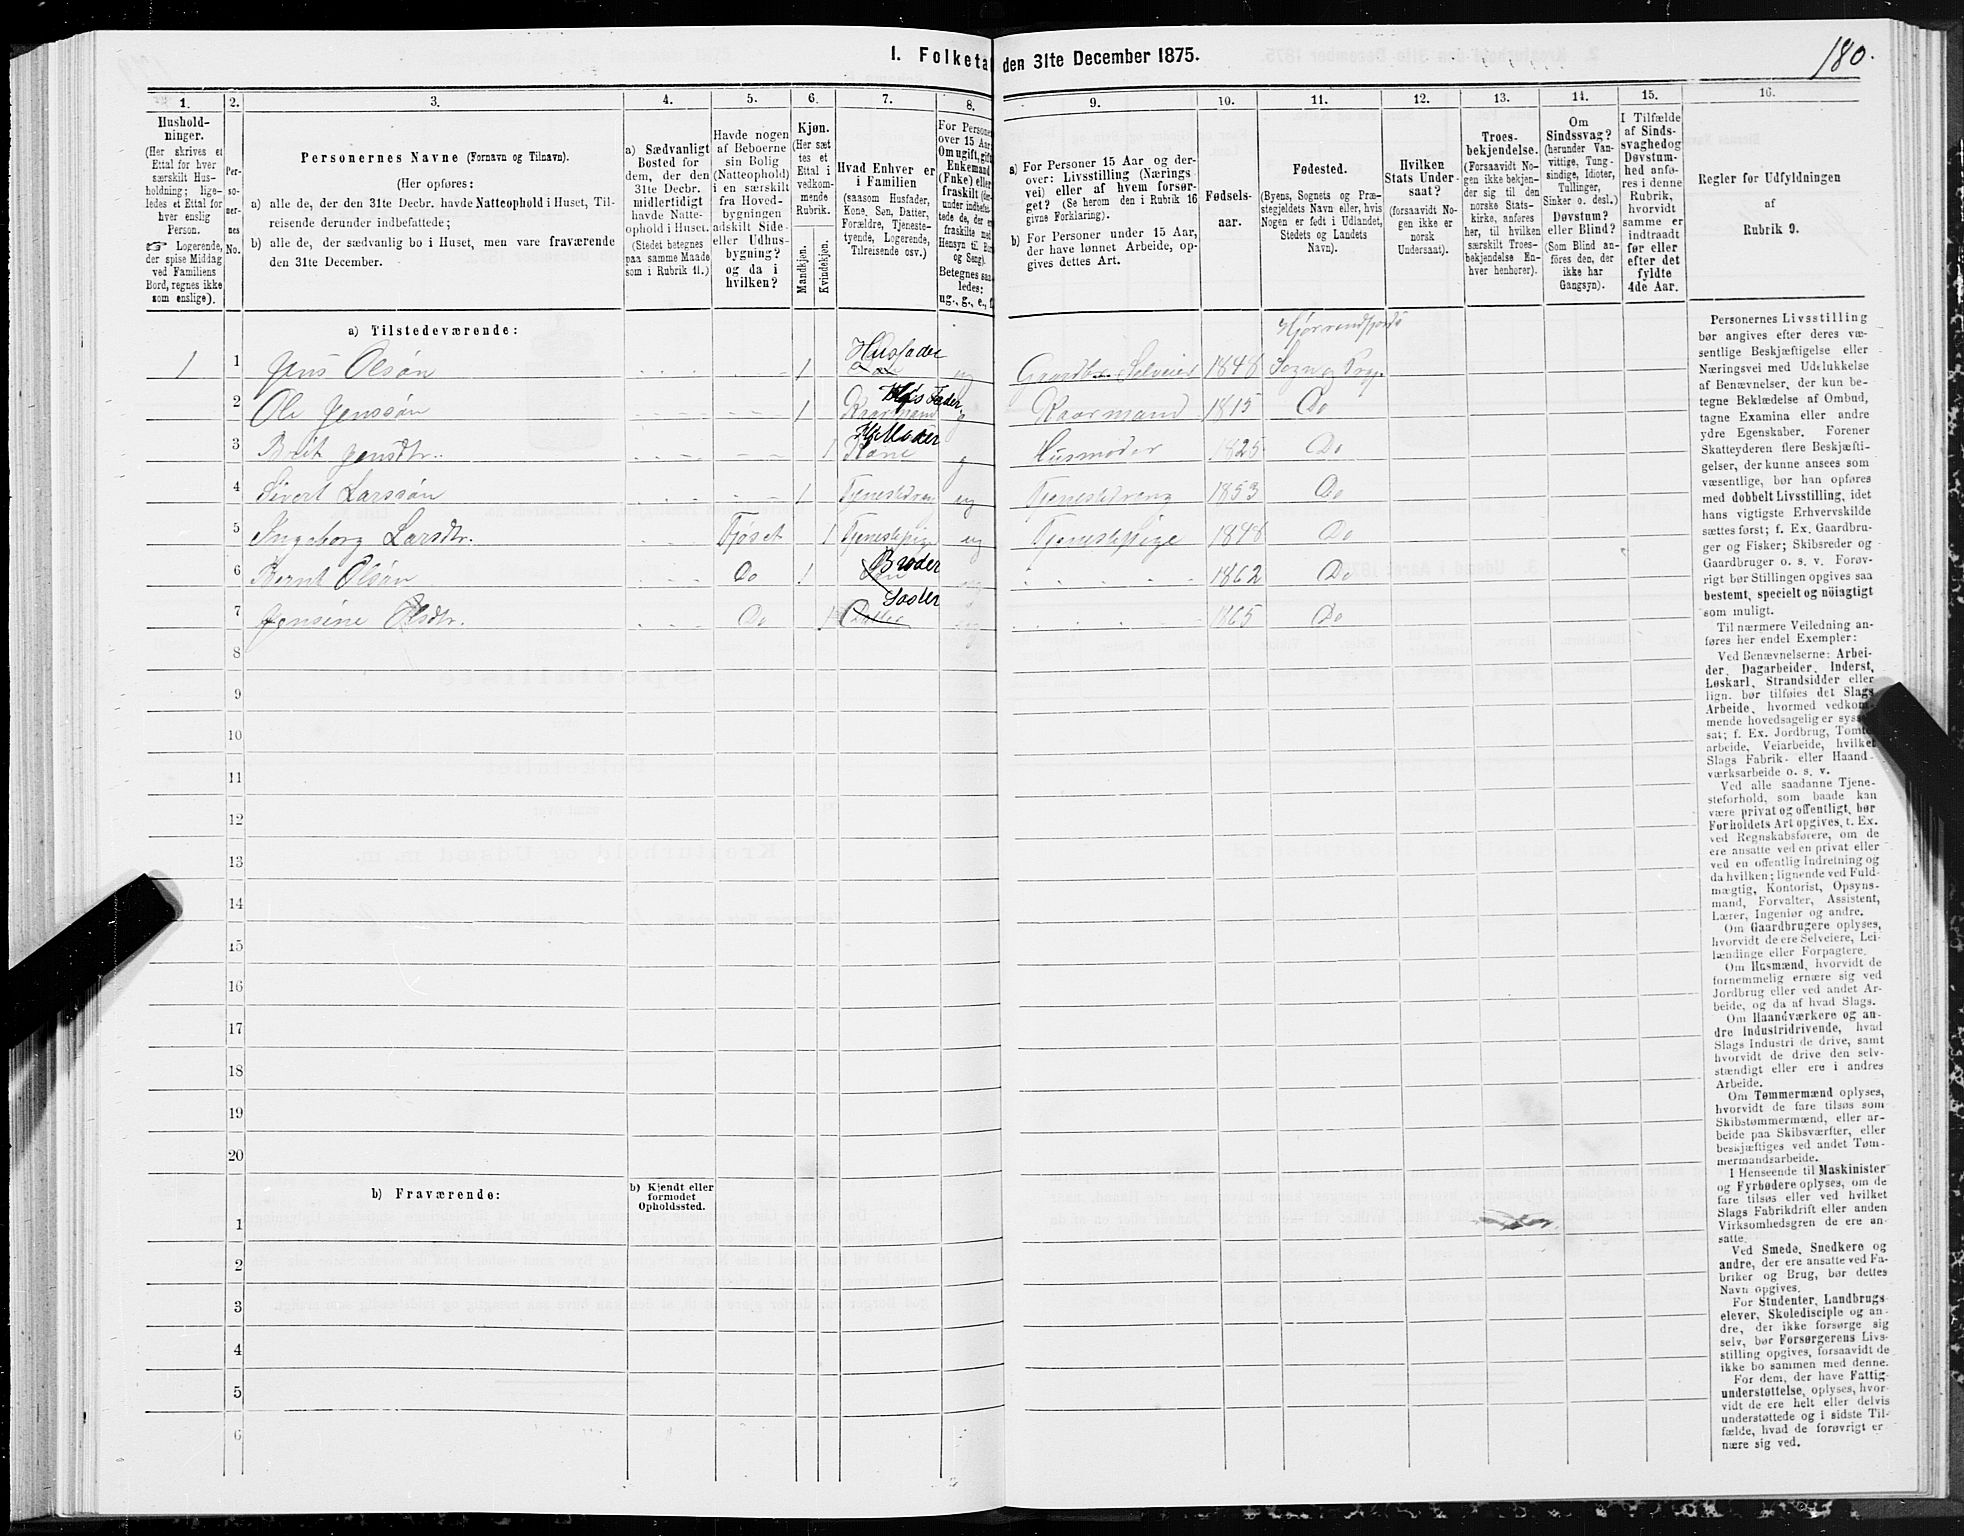 180.
I. Folketa
den 31te December 1875.
1.
2.
3.
4.
5.
6.
7.
8.
9.
10.
11.
12.
13.
14.
15.
16.
Hushold-
ninger.
(Her skrives et
Ettal for hver
særskilt Hus-
holdning; lige-
ledes et Ettal for
hver enslig
Person.
☞ Logerende,
der spise Middag
ved Familiens
Bord, regnes ikke
som enslige).
Per-
so-
ner-
nes
No.
Personernes Navne (Fornavn og Tilnavn).
(Her opføres:
a) alle de, der den 31te Decbr. havde Natteophold i Huset, Til-
reisende derunder indbefattede;
b) alle de, der sædvanlig bo i Huset, men vare fraværende
den 31te December.
a) Sædvanligt
Bosted for
dem, der den
31te Decbr.
midlertidigt
havde Natte-
ophold i Huset.
(Stedet betegnes
paa samme Maade
som i Rubrik 11.)
Havde nogen
af Beboerne
sin Bolig
(Natteophold)
i en særskilt
fra Hoved-
bygningen
adskilt Side-
eller Udhus-
bygning?
og da i
hvilken?
Kjøn.
(Her sæt-
tes et
Ettal i
vedkom-
mende
Rubrik.
Mandkjøn.
Kvindekjøn.
Hvad Enhver er
i Familien
(saasom Husfader,
Kone, Søn, Datter,
Forældre, Tjeneste-
tyende, Logerende,
Tilreisende osv.)
For Persone
over 15 Aar
Om ugift, gift
Enkemand
(Enke) eller
fraskilt (der-
under indbefat-
tede de, der er
fraskilte med
Hensyn til Bor
og Seng).
Betegnes saa-
ledes:
ug., g., e., f.
a) For Personer 15 Aar og der-
over: Livsstilling (Nærings
vei) eller af hvem forsør-
get? (Se herom den i Rubrik 16
givne Forklaring).
b) For Personer under 15 Aar,
der have lønnet Arbeide, op-
gives dettes Art.
Fødsels-
aar.
Fødested.
(Byens, Sognets og Præ-
stegjeldets Navn eller, hvis
Nogen er født i Udlandet,
Stedets og Landets
Navn).
Hvilken
Stats Under-
saat?
(forsaavidt No-
gen ikke er
norsk
Undersaat).
Troes-
bekjendelse.
(Forsaavidt No-
gen ikke bekjen-
der sig til den
norske Stats-
kirke, anføres
her, til hvilken
særskilt Troes-
bekjendelse En-
hver henhører).
Om
Sindssvag?
(herunder Van-
vittige, Tung-
sindige, Idioter,
Tullinger,
Sinker o. desl.)
Døvstum?
eller Blind?
(Som Blind an-
føres den, der
ikke har
Gangsyn).
I Tilfælde
af Sinds-
svaghed og
Døvstum-
hed anfø-
res i denne
Rubrik,
hvorvidt
samme er
indtraadt
før eller
efter det
fyldte
4de Aar.
Regler for Udfyldningen
af
Rubrik 9.
a) Tilstedeværende:
Hjørrendfjords
1 1 Jens Olsøn 1 Husfader ug Gaardbr. Selveier 1848 Sogn og Præ.
2 Ole Jenssøn 1 Kaarmand Hs Fader g Kaarmand 1815 Do
3 Brit Jensdtr. 1 Kone Hs Moder g Husmoder 1825 Do
4 Sivert Larssøn 1 Tjenestedreng ug Tjenestedreng 1853 Do
5 Ingeborg Larsdtr. Fjøset 1 Tjenestepige ug Tjenestepige 1848 Do
6 Bernt Olsøn Do 1 Søn Broder ug 1862 Do
7 Jensine Olsdtr. Do 1 Datter Søster ug 1865 Do
8
9
10
11
12
13
14
15
16
17
18
19
20
b) Fraværende:
b) Kjendt eller
formodet
Opholdssted.
1
2
3
4
5
6
Personernes Livsstilling
bør angives efter deres væ-
sentlige Beskjæftigelse eller
Næringsvei med Udelukkelse
af Benævnelser, der kun be-
tegne Beklædelse af Ombud,
tagne Examina eller andre
ydre Egenskaber. Forener
Skatteyderen flere Beskjæfti-
gelser, der kunne ansees som
væsentlige, bør han opføres
med dobbelt Livsstilling, idet
hans vigtigste Erhvervskilde
sættes først; f. Ex. Gaardbru-
ger og Fisker; Skibsreder og
Gaardbruger o. s. v. Forøv-
rigt bør Stillingen opgives saa
bestemt, specielt og nöiagtigt
som muligt.
Til nærmere Veiledning an-
føres her endel Exempler:
Ved Benævnelserne: Arbei-
der, Dagarbeider, Inderst,
Løskarl, Strandsidder eller
lign. bør tilføies det Slags
Arbeide, hvormed vedkom-
mende hovedsagelig er syssel-
sat; f. Ex. Jordbrug, Tømte
arbeide, Veiarbeide, hvilket
Slags Fabrik- eller Haand-
værksarbeide o. s. v.
Ved alle saadanne Tjene-
steforhold, som baade kan
være privat og offentligt, bør
Forholdets Art opgives, t. Ex.
ved Regnskabsførere, om de
ere ansatte ved en privat eller
ved en offentlig Indretning og
da hvilken; lignende ved Fuld-
mægtig, Kontorist, Opsyns-
mand, Forvalter, Assistent,
Lærer, Ingeniør og andre.
Om Gaardbrugere oplyses,
hvorvidt de ere Selveiere, Lei-
lændinge eller Forpagtere.
Om Husmænd, hvorvidt de
fornemmelig ernære sig ved
Jordbrug eller ved andet Ar-
beide, og da af hvad Slags.
Om Haandværkere og an-
dre Industridrivende, hvad
Slags Industri de drive, samt
hvorvidt de drive den selv-
stændigt eller ere i andres
Arbeide.
Om Tømmermænd oplyses,
hvorvidt de fare tilsøs som
Skibstømmermænd, eller ar-
beide paa Skibsværfter, eller
beskjæftiges ved andet Tøm-
mermandsarbeide.
I Henseende til Maskinister
og Fyrbødere oplyses, om de
fare tilsøs eller ved hvilket
Slags Fabrikdrift eller anden
Virksomhedsgren de ere an-
satte.
Ved Smede, Snedkere og
andre, der ere ansatte ved Fa-
briker og Brug, bør dettes
Navn opgives.
For Studenter, Landbrugs-
elever, Skoledisciple og an-
dre, der ikke forsørge sig
selv, bør Forsørgerens Livs-
stilling opgives, forsaavidt de
ikke bo sammen med denne.
For dem, der have Fattig-
understøttelse, oplyses, hvor-
vidt de ere helt eller delvis
understøttede og i sidste Til-
fælde, hvad de forøvrigt er-
nære sig ved.